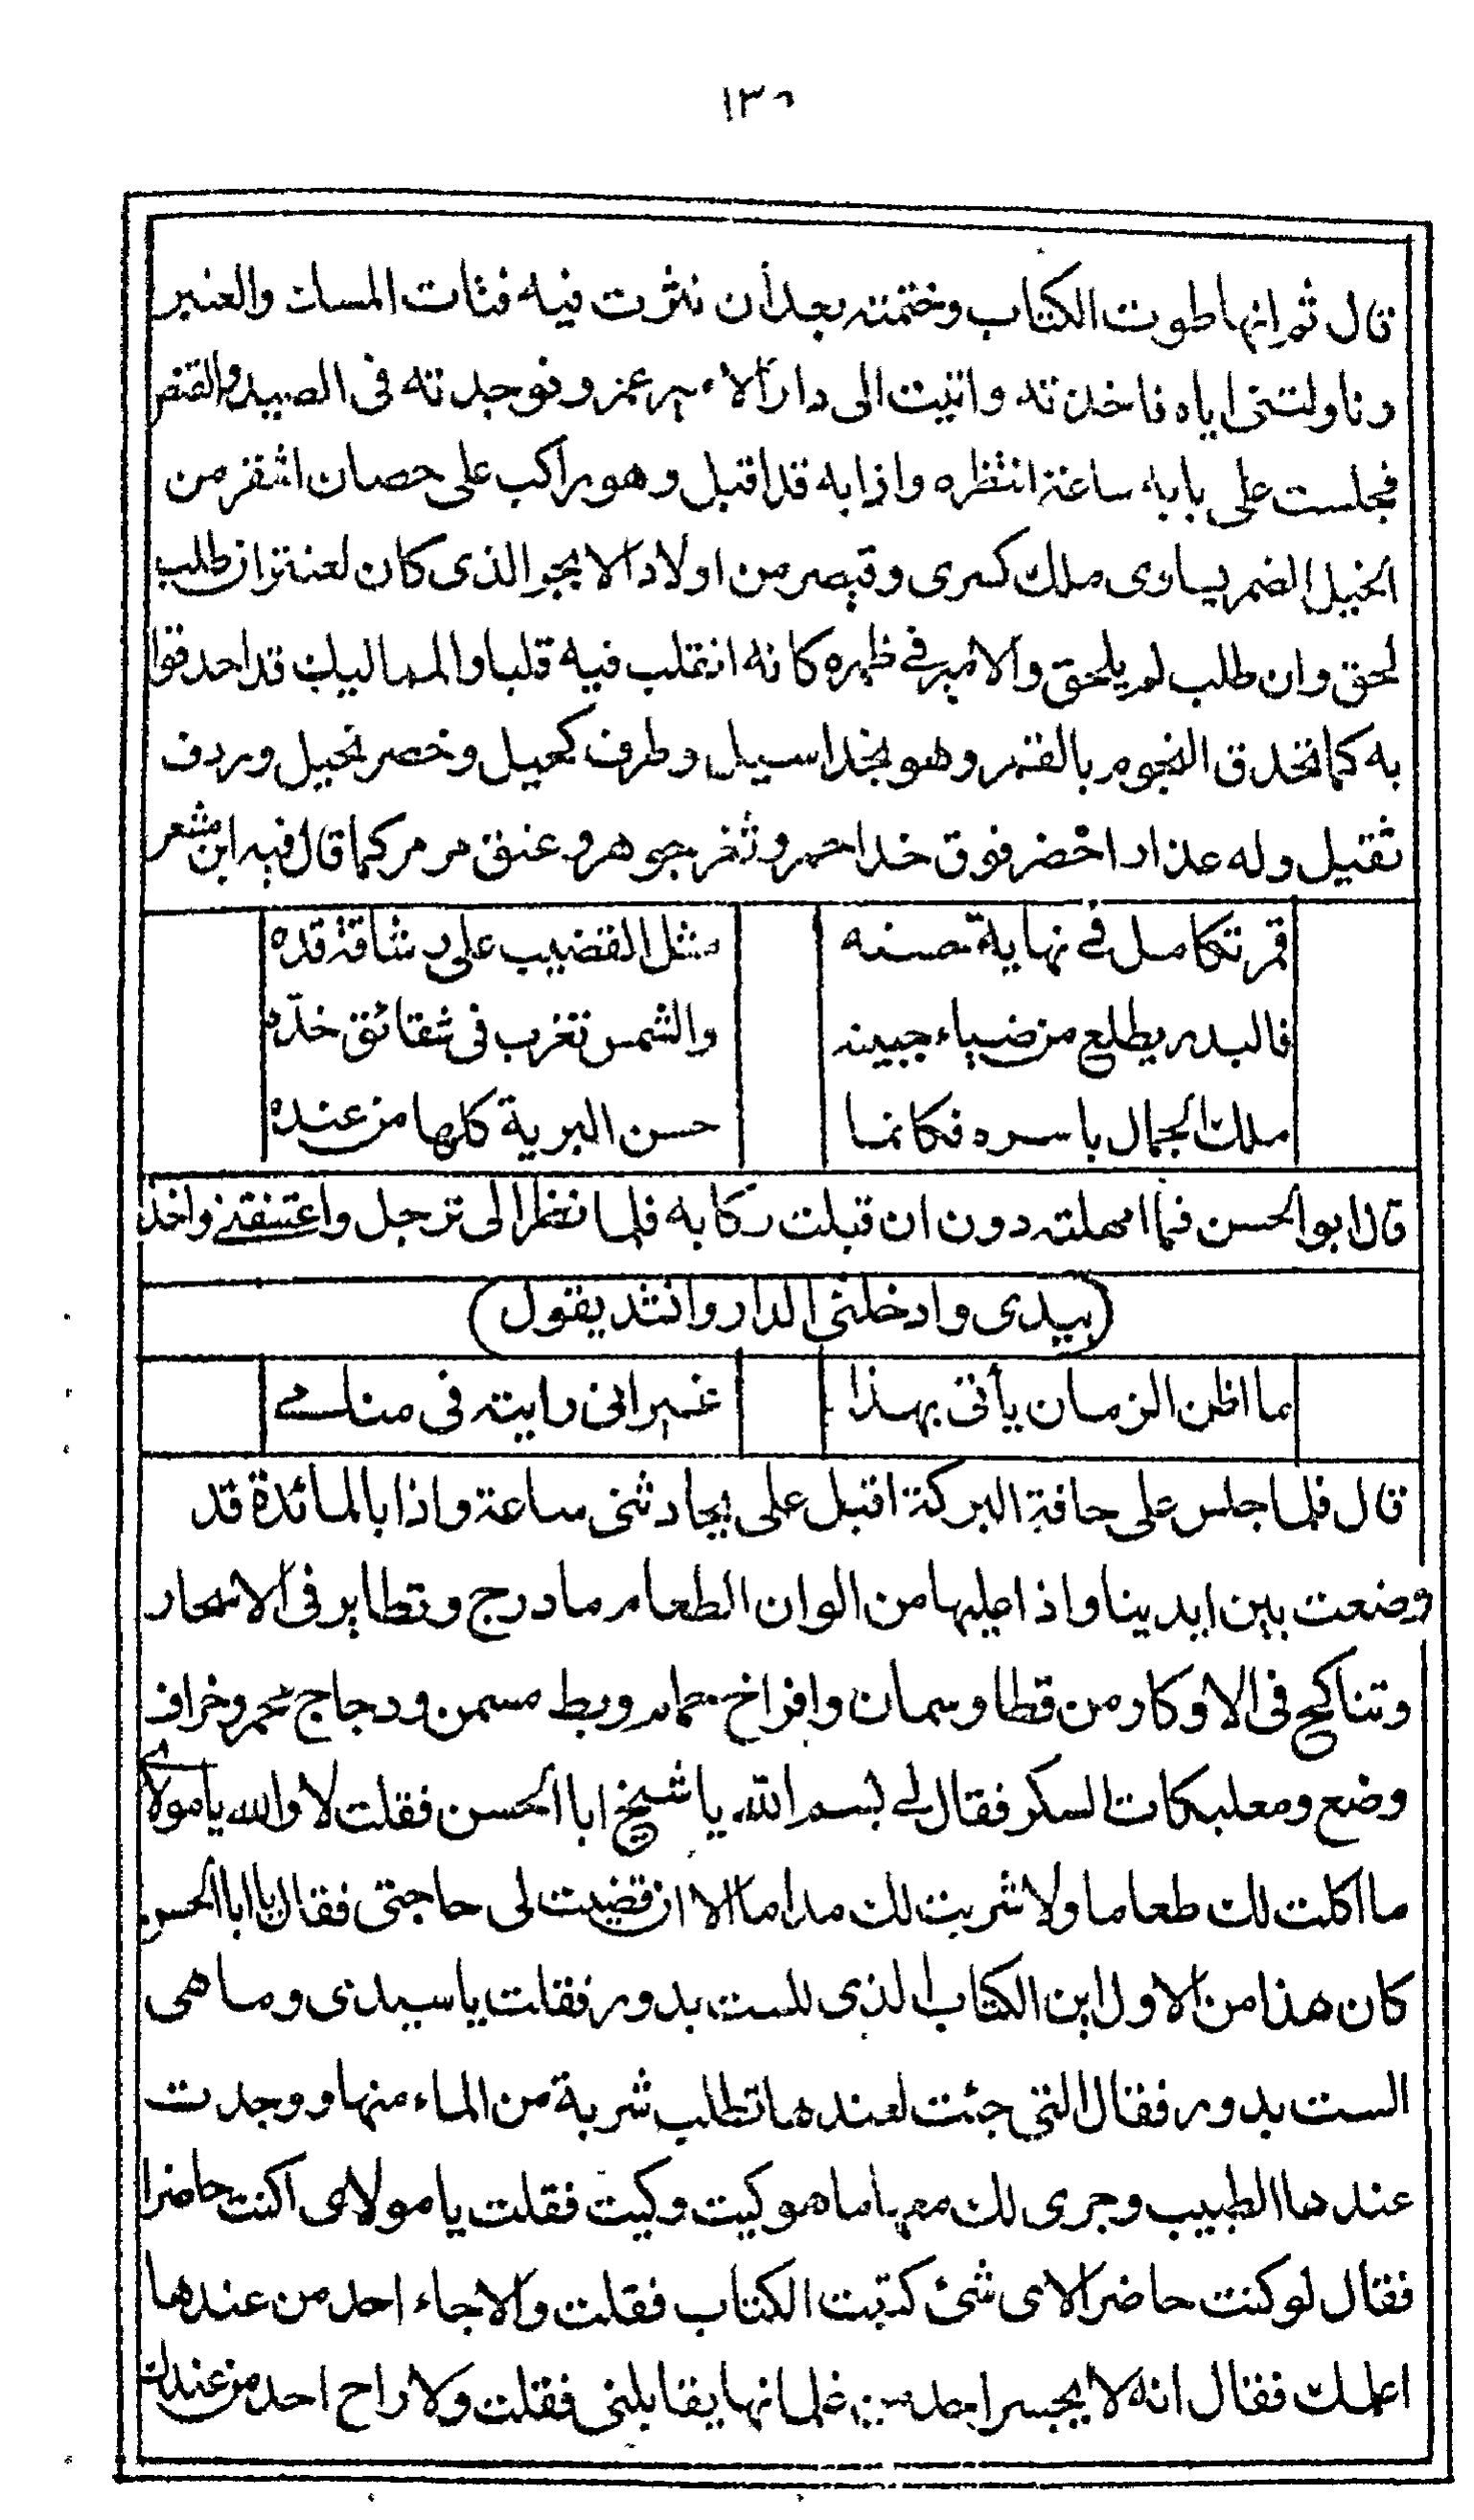 ١٣٥
قال ثم انها طوت الكتاب وختمته بعد أن نثرت فيه فتات المسك والعنبر
وناولتنى اياه فاخذته واتيت الى دار الامير عمرو فوجدته فى الصيد والقنص
فجلست على بابه ساعة انتظره واذا به قد اقبل وهو راكب على حصان اشقر من
الخيل الضمر يساوى ملك كسرى وقيصر من اولاد الابجر الذى كان لعنتر ان طلب
لحق وان طلب لم يلحق والامير فى ظهره كانه انقلب فيه قلبا والمماليك قد احدقوا
به كما تحدق النجوم بالقمر وهو بخد اسيل وطرف كحيل وخصر نحيل وردف
ثقيل وله عذار اخضر فوق خد احمر وثغر جوهر وعنق مرمر كما قال فيه ابن مشعر
قمر تكامل فى نهاية حسنه مثل القضيب على رشاقة قده
فالبدر يطلع من ضياء جبينه والشمس تغرب فى شقائق خده
ملك الجمال باسره فكانما حسن البرية كلها من عنده
قال ابو الحسن فما امهلته دون ان قبلت ركابه فلما نظر الى ترجل واعتنقنى واخذ
(بيدى وادخلنى الدار وانشد يقول)
ما اظن الزمان يأتى بهذا غير انى رايته فى منامى
قال فلما جلس على حافة البركة اقبل على يحادثنى ساعة واذا بالمائدة قد
وضعت بين ايدينا واذا عليها من الوان الطعام ما درج وتطاير فى الاسحار
وتناكح فى الاوكار من قطا وسمان وافراخ حمام وبط مسمن ودجاج محمر وخراف
وضع ومعلبكات السكر فقال لى بسم الله يا شيخ ابا الحسن فقلت لا والله يا مولاى
ما اكلت لك طعاما ولا شربت لك مداما الا ان قضيت لى حاجتى فقال يا ابا الحسن
كان هذا من الاول اين الكتاب الذى للست بدور فقلت يا سيدى وما هى
الست بدور فقال التى جئت لعندها تطلب شربة من الماء منها ووجدت
عندها الطبيب وجرى لك معها ما هو كيت وكيت فقلت يا مولاى اكنت حاضرا
فقال لو كنت حاضرا لاى شئ كتبت الكتاب فقلت والا جاء احد من عندها
اعلمك فقال انه لا يجسر احد من غلمانها يقابلنى فقلت ولا راح احد من عندك